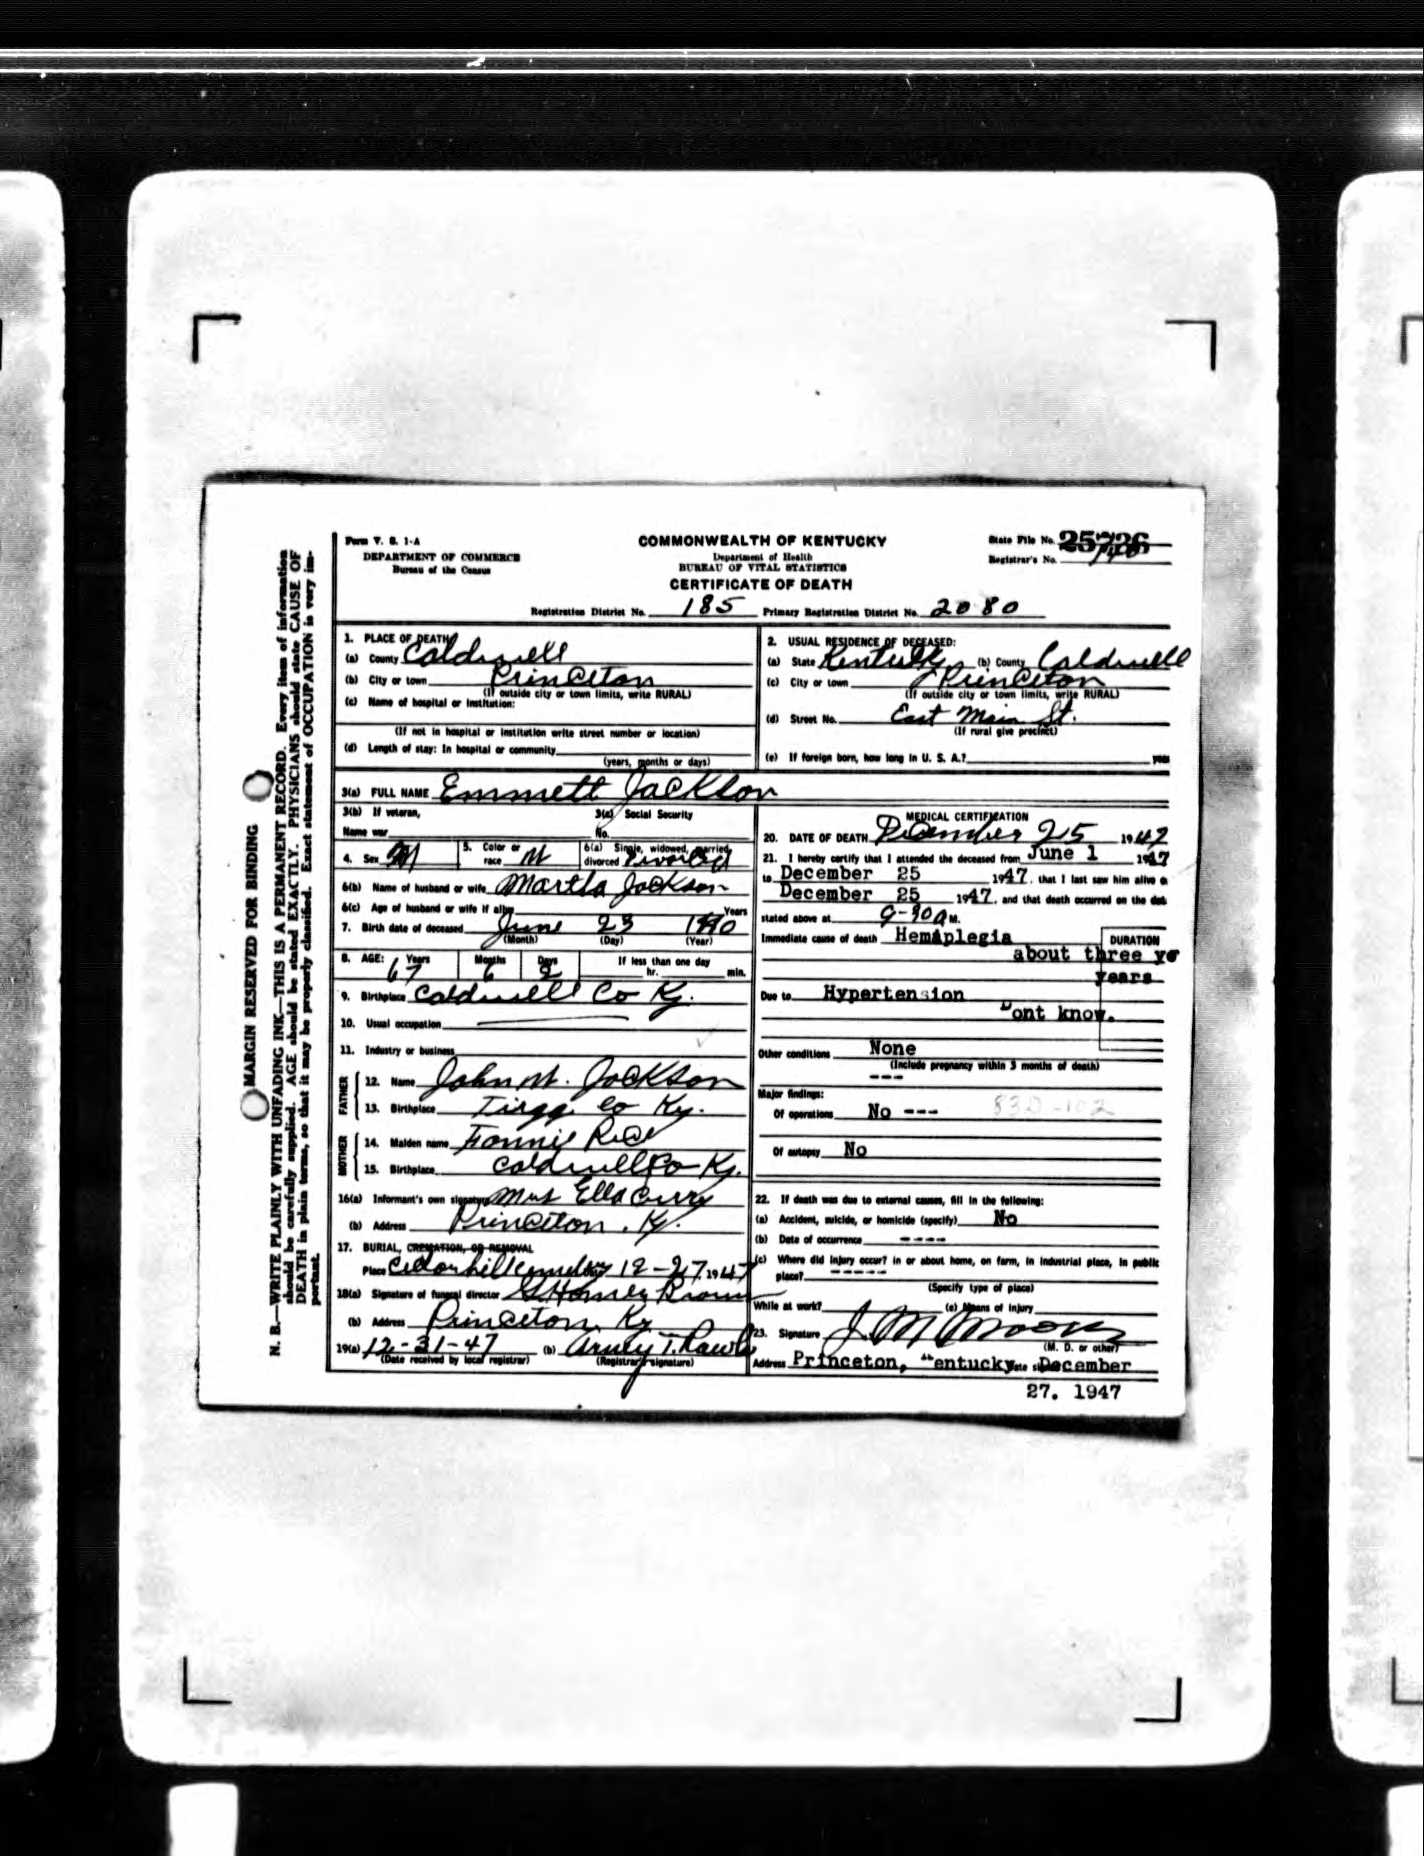 Form V. S. 1-A
DEPARTMENT OF COMMERCE
Bureau of the Census
COMMONWEALTH OF KENTUCKY
Department of Health
BUREAU OF VITAL STATISTICS
CERTIFICATE OF DEATH
State File No. 25726
Registrar's No.
Registration District No. 185 Primary Registration District No. 2080
MARGIN RESERVED FOR BINDING
N. B.—WRITE PLAINLY WITH UNFADING INK—THIS IS A PERMANENT RECORD. Every item of information
should be carefully supplied. AGE should be stated EXACTLY. PHYSICIANS should state CAUSE OF
DEATH in plain terms, so that it may be properly classified. Exact statement of OCCUPATION is very im-
portant.
1. PLACE OF DEATH
(a) County Caldwell
(b) City or town Princeton
(If outside city or town limits, write RURAL)
(c) Name of hospital or institution:
(If not in hospital or institution write street number or location)
(d) Length of stay: In hospital or community
(years, months or days)
2. USUAL RESIDENCE OF DECEASED:
(a) State Kentucky (b) County Caldwell
(c) City or town Princeton
(If outside city or town limits, write RURAL)
(d) Street No. East Main St.
(If rural give precinct)
(e) If foreign born, how long in U. S. A.? year
3(a) FULL NAME Emmett Jackson
3(b) If veteran,
Name war
3(c) Social Security
No.
4. Sex M
5. Color or race W
6(a) Single, widowed, married, divorced Divorced
6(b) Name of husband or wife Martha Jackson
6(c) Age of husband or wife if alive Years
7. Birth date of deceased June 23 1880
(Month) (Day) (Year)
8. AGE: Years Months Days If less than one day
67 6 2 hr. min.
9. Birthplace Caldwell Co Ky.
10. Usual occupation
11. Industry or business
FATHER
12. Name John W. Jackson
13. Birthplace Trigg Co Ky.
MOTHER
14. Maiden name Fannie Rice
15. Birthplace Caldwell Co Ky.
16(a) Informant's own signature Mrs Ella Curry
(b) Address Princeton, Ky.
17. BURIAL, CREMATION, OR REMOVAL
Place Cedarhill Cemetery 12-27, 1947
18(a) Signature of funeral director Brown
(b) Address Princeton, Ky
19(a) 12-31-47 (b)
(Date received by local registrar) (Registrar's signature)
MEDICAL CERTIFICATION
20. DATE OF DEATH December 25 1947
21. I hereby certify that I attended the deceased from June 1 1947
to December 25 1947, that I last saw him alive o
December 25 1947, and that death occurred on the dat
stated above at 9-30 a M.
Immediate cause of death Hemiplegia
DURATION
about three ye
years
Due to Hypertension
"ont know.
Other conditions None
(Include pregnancy within 3 months of death)
---
Major findings:
Of operations No --- 83D-102
Of autopsy No
22. If death was due to external causes, fill in the following:
(a) Accident, suicide, or homicide (specify) No
(b) Date of occurrence ----
(c) Where did injury occur? in or about home, on farm, in industrial place, in public
place? -----
(Specify type of place)
While at work? (e) Means of injury
23. Signature J. M. Moore
(M. D. or other)
Address Princeton, "entucky Date signed December
27. 1947